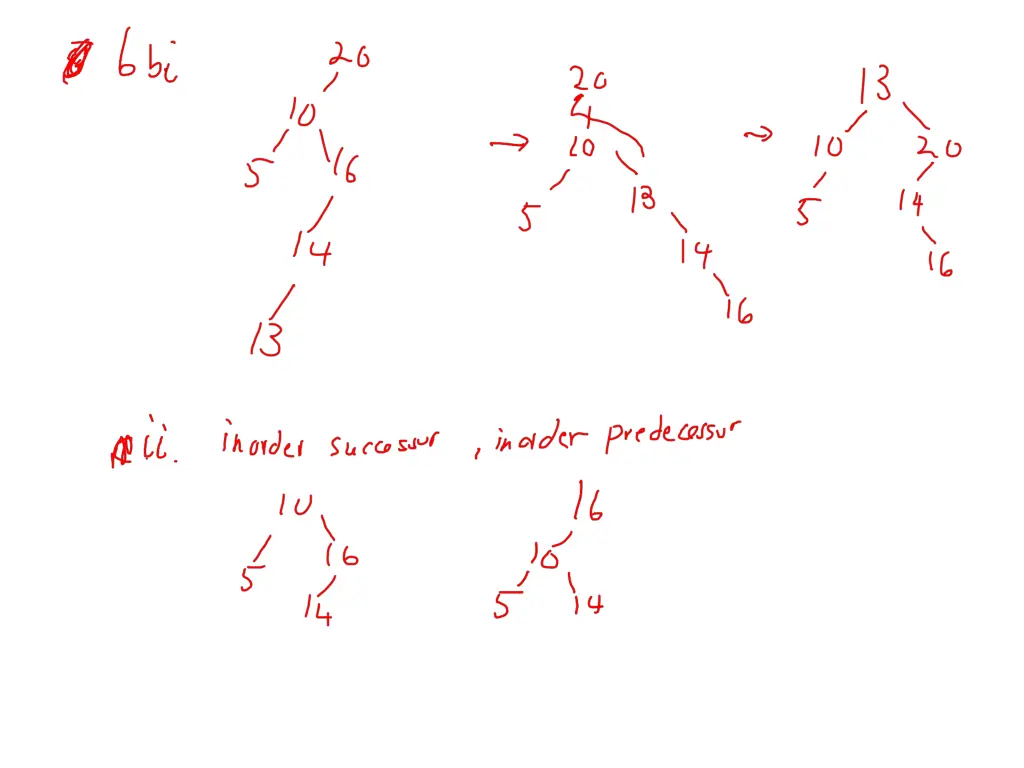 6bi
20
20 13
10
10 10 20
5 16
5 13 14
14 14 16
16
13
ii. inorder successur , inorder predecessur
10 16
16 10
5
14 5 14